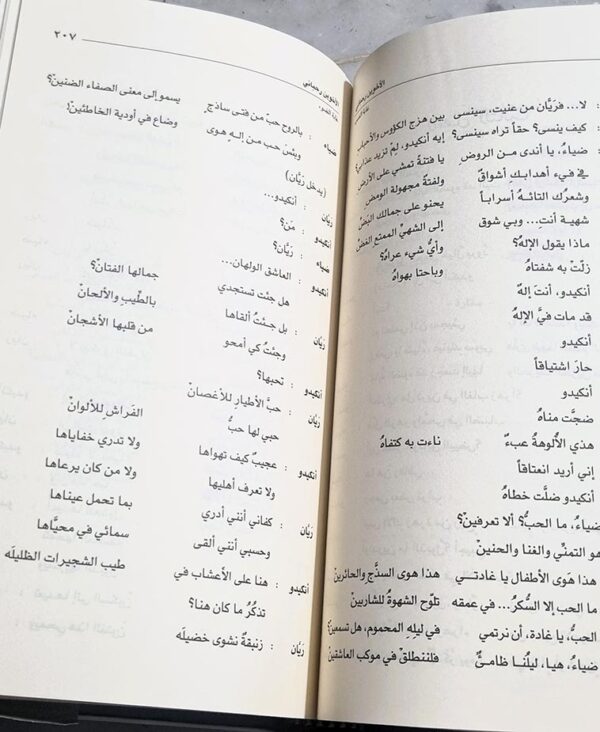 الأخوين رحباني
لا... فريّان من عنيت، سينسى بين هزج الكؤوس والأحباب
كيف ينسى؟ حقاً تراه سينسى؟ إيه أنكيدو، لمْ تزيد عذابي؟
ضياءُ، يا أندى من الروض يا فتنةً تمشي على الأرض
في فيء أهدابك أشواقٌ ولفتةٌ مجهولة الومض
وشعرُك التائهُ أسراباً يحنو على جمالك البَضّ
شهية أنتِ... وبي شوق إلى الشهيّ الممتع الغضّ
ماذا يقول الإلهُ؟ وأيُّ شيء عراهُ؟
زلّتْ به شفتاهُ وباحتا بهواهُ
أنكيدو، أنتَ إلهٌ
قد مات فيَّ الإلهُ
أنكيدو
حارَ اشتياقاً
أنكيدو
ضجّت مناهُ
هذي الألوهةُ عبءٌ ناءت به كتفاهُ
إني أريد انعتاقاً
أنكيدو ضلّت خطاهُ
ضياءُ، ما الحبُّ؟ ألا تعرفينْ؟
هو التمنّي والغنا والحنينْ
هذا هوَى الأطفال يا غادتي هذا هوى السذّج والحائرينْ
ما الحب إلا السُّكرُ... في عمقه تلوّح الشهوةُ للشاربينْ
الحبُّ، يا غادة، أن نرتمي في ليلهِ المحموم، هل تسمعينْ؟
ضياءُ، هيا، ليلُنا ظامئٌ فلننطلقْ في موكب العاشقينْ
الأخوين رحباني
٢٠٧
ضياء : بالروح حبٌّ من فتى ساذجٍ يسمو إلى معنى الصفاء الضنينْ؟
وبئسَ حب من إلهٍ هوى وضاع في أودية الخاطئينْ!
(يدخل ريّان)
ريّان : أنكيدو...
أنكيدو : مَنْ؟
ضياء : ريّان؟
أنكيدو : العاشق الولهان...
هل جئت تستجدي جمالها الفتانْ؟
ريّان : بل جئتُ ألقاها بالطّيبِ والألحانْ
وجئتُ كي أمحو من قلبها الأشجانْ
أنكيدو : تحبها؟
ريّان : حبَّ الأطيار للأغصانْ
حبي لها حبُّ الفَراشِ للألوانْ
أنكيدو : عجيبٌ كيف تهواها ولا تدري خفاياها
ولا تعرف أهليها ولا من كان يرعاها
ريّان : كفاني أنني أدري بما تحمل عيناها
وحسبي أنني ألقى سمائي في محيّاها
أنكيدو : هنا على الأعشاب في طيب الشجيرات الظليله
تذكُرُ ما كان هنا؟
ريّان : زنبقةٌ نشوى خضيله